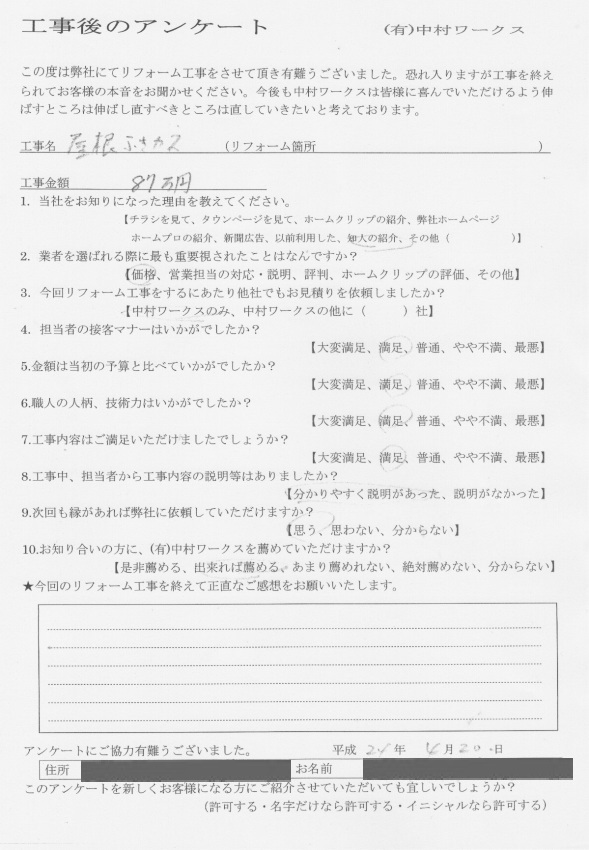 工事後のアンケート (有)中村ワークス
この度は弊社にてリフォーム工事をさせて頂き有難うございました。恐れ入りますが工事を終え
られてお客様の本音をお聞かせください。今後も中村ワークスは皆様に喜んでいただけるよう伸
ばすところは伸ばし直すべきところは直していきたいと考えております。
工事名 屋根ふきかえ (リフォーム箇所 )
工事金額 87万円
1. 当社をお知りになった理由を教えてください。
【チラシを見て、タウンページを見て、ホームクリップの紹介、弊社ホームページ
ホームプロの紹介、新聞広告、以前利用した、知人の紹介、その他( )】
2. 業者を選ばれる際に最も重要視されたことはなんですか？
【価格、営業担当の対応・説明、評判、ホームクリップの評価、その他】
3. 今回リフォーム工事をするにあたり他社でもお見積りを依頼しましたか？
【中村ワークスのみ、中村ワークスの他に( )社】
4. 担当者の接客マナーはいかがでしたか？
【大変満足、満足、普通、やや不満、最悪】
5.金額は当初の予算と比べていかがでしたか？
【大変満足、満足、普通、やや不満、最悪】
6.職人の人柄、技術力はいかがでしたか？
【大変満足、満足、普通、やや不満、最悪】
7.工事内容はご満足いただけましたでしょうか？
【大変満足、満足、普通、やや不満、最悪】
8.工事中、担当者から工事内容の説明等はありましたか？
【分かりやすく説明があった、説明がなかった】
9.次回も縁があれば弊社に依頼していただけますか？
【思う、思わない、分からない】
10.お知り合いの方に、(有)中村ワークスを薦めていただけますか？
【是非薦める、出来れば薦める、あまり薦めれない、絶対薦めない、分からない】
★今回のリフォーム工事を終えて正直なご感想をお願いいたします。
アンケートにご協力有難うございました。 平成 24 年 4 月 20 日
住所 お名前
このアンケートを新しくお客様になる方にご紹介させていただいても宜しいでしょうか？
(許可する・名字だけなら許可する・イニシャルなら許可する)